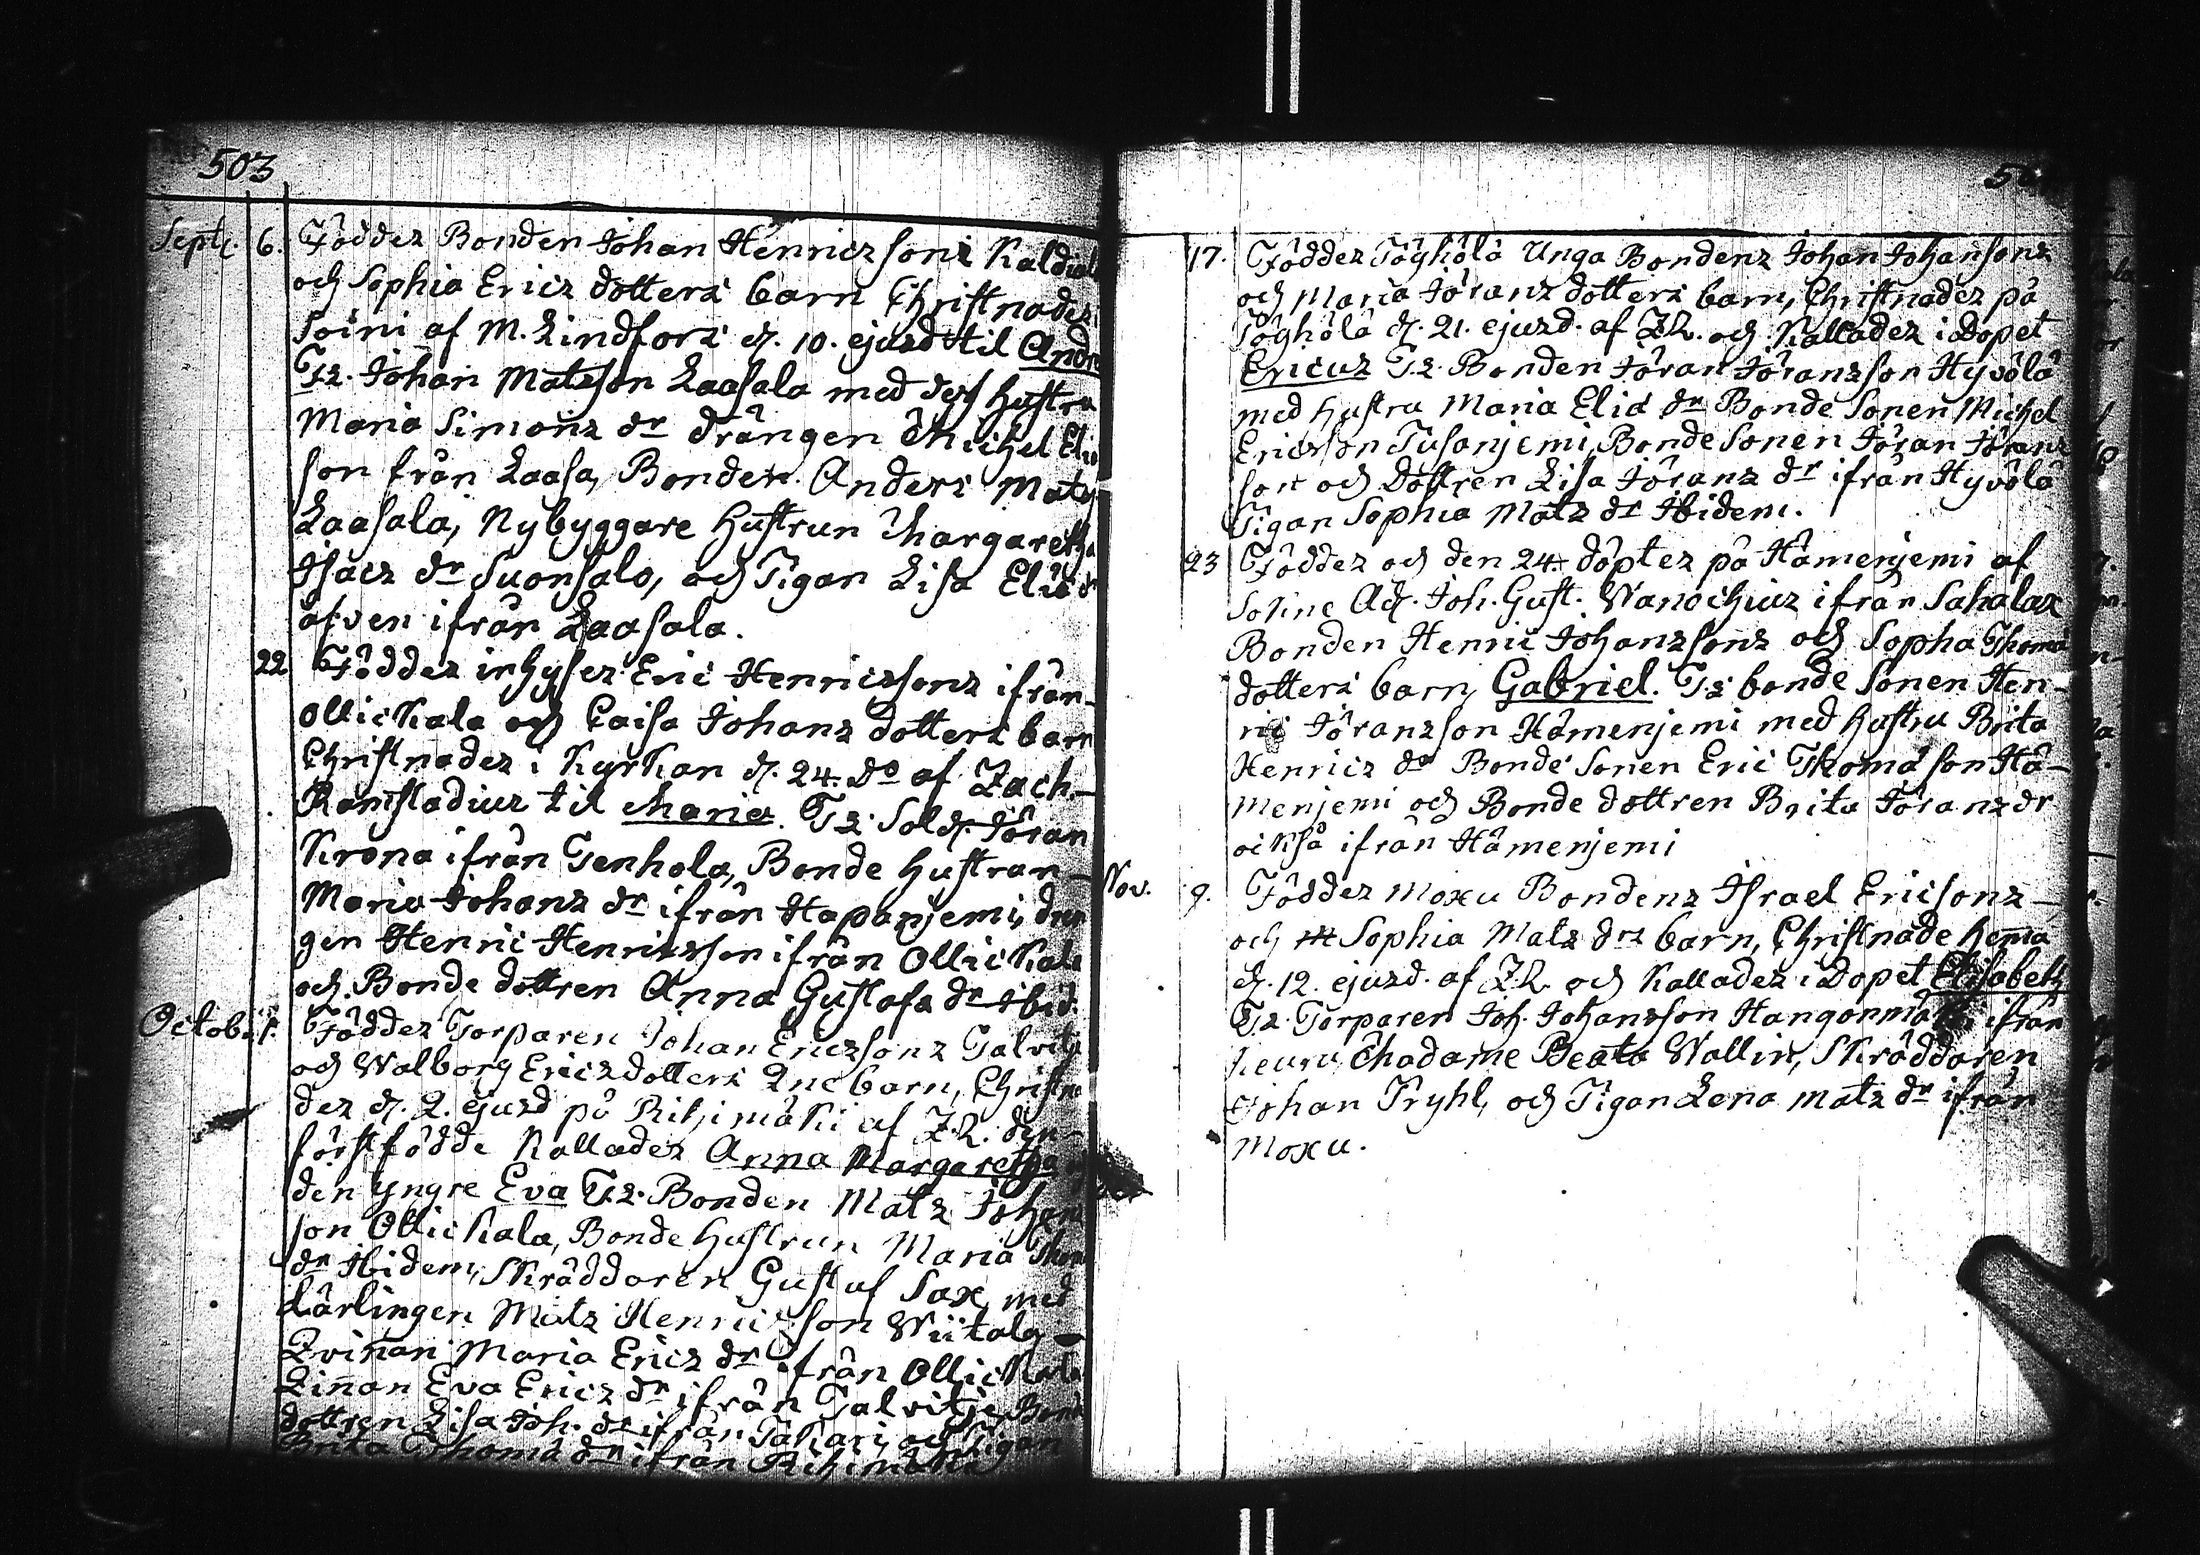 503
Septr. 6. Föddes Bonden Johan Henricssons Kaldial
och Sophia Erics dotters barn Christnades
Soini af M. Lindfors d. 10. ejusd til Andr
T2. Johan Matsson Laasala med dess hustru
Maria Simons dr drängen Michel Eli
son från Laasa, Bonden Anders Mats
Laasala, Nybyggare Hustrun Margaretha
Isacs dr Suonsalo, och Pigan Lisa Eliæ d
äfven ifrån Laasala.
22 Föddes inhyses Eric Henricssons ifrån
Ollickala och Caisa Johans dotters barn
Christnades i Kyrkan d. 24. do af Zach.
Ramstadius til Maria. T2. Sold. Jöran
Krona ifrån Tenhola, Bonde hustrun
Maria Johans dr ifrån Hapanjemi, drän
gen Henric Henricsson ifrån Ollickala
och Bonde dottren Anna Gustafs dr ibid.
Octob. 1. Föddes Torparen Johan Ericssons Talvitje
och Walborg Erics dotters 2ne barn, Christna
des d. 2. ejusd på Rihimäki af Z.R. den
förstfödde kallades Anna Margaretha
den yngre Eva T2. Bonden Mats Johans
son Ollickala, Bonde hustrun Maria Thom
dr Ibidem, Skräddaren Gustaf Sax, med
Lärlingen Mats Henricsson Wiitala
Qvinnan Maria Erics dr ifrån Ollickala
Qinnan Eva Erics dr ifrån Talvitje Bonde
dottren Lisa Joh. dr ifrån Takari, och Pigan
Brita Thomæ dr ifrån Rihimäki
17. Föddes Töyhölä Unga Bondens Johan Johansons
och Maria Jörans dotters barn, Christnades på
Töyhölä d. 21. ejusd. af Z.R. och Kallades i Dopet
Ericus T2. Bonden Jöran Jöransson Hyvölä
med hustru Maria Eliæ dr Bonde Sonen Michel
Ericsson Tusanjemi, Bonde Sonen Jöran Jörans
son och Dottren Lisa Jörans dr ifrån Hyvölä
Pigan Sophia Mats dr Ibidem.
23 Föddes och den 24. döptes på Hämenjemi af
Adj. Joh. Gust. Wanochius ifrån Sahalax
Bonden Henric Johanssons och Sopha Thomæ
dotters barn, Gabriel. T2. bonde Sonen Hen-
ric Jöransson Hämenjemi med hustru Brita
Henrics dr Bonde Sonen Eric Thomæson Hä-
menjemi och Bonde dottren Brita Jörans dr
också ifrån Hämenjemi
Nov. 9. Föddes Moxu Bondens Israel Ericsons
och Sophia Mats drs barn, Christnade hema
d. 12. ejusd. af Z.R. och Kallades i Dopet Elisabeth
T2. Torparen Joh. Johansson Hangonmäki ifrån
Madame Beata Wallin, Skräddaren
Johan Pryhl, och Pigan Lena Mats dr ifrån
Moxu.